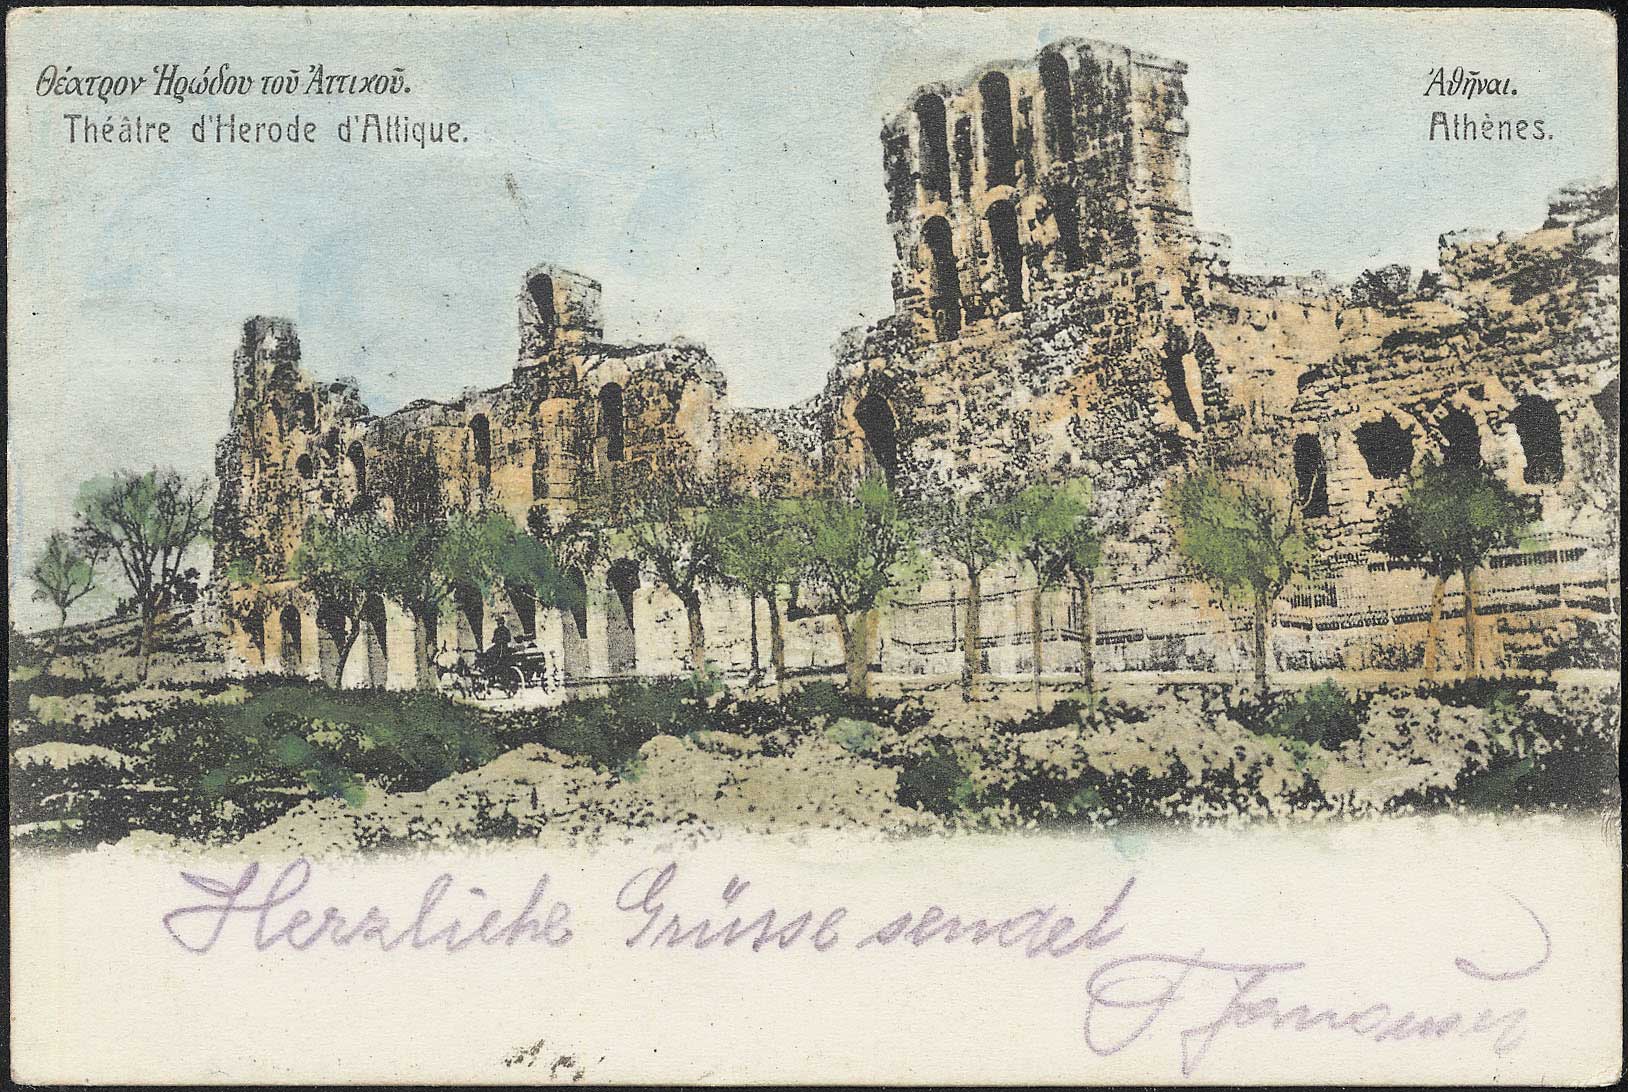 Θέατρον Ἡρώδου τοῦ Ἀττικοῦ.
Théâtre d'Herode d'Attique.
Ἀθῆναι.
Athènes.
Herzliche Grüsse sendet